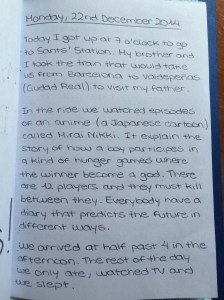 Monday, 22nd December 2014
Today I got up at 7 o'clock to go
to Sants' Station. My brother and
I took the train that would take
us from Barcelona to Valdepeñas
(Ciudad Real) to visit my father.
In the ride we watched episodes
of an anime (a Japanese cartoon)
called Mirai Nikki. It explain the
story of how a boy participes in
a kind of hunger games where
the winner become a god. There
are 12 players and they must kill
between they. Everybody have a
diary that predicts the future in
different ways.
We arrived at half past 4 in the
afternoon. The rest of the day
we only ate, watched TV and
we slept.